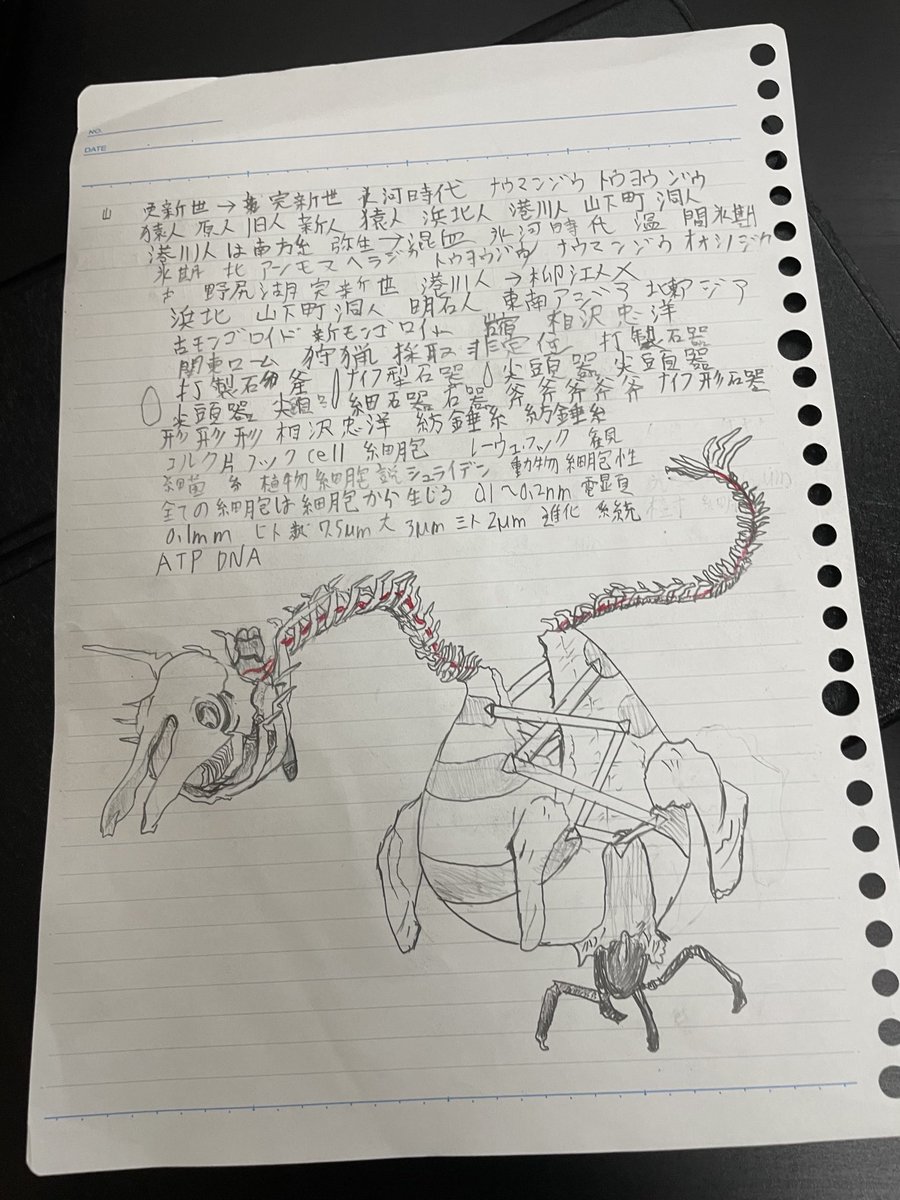 NO.
DATE
山 更新世→ 完新世 氷河時代 ナウマンゾウ トウヨウゾウ
猿人 原人 旧人 新人 猿人 浜北人 港川人 山下町 洞人
港川人は南方系 弥生→混血 氷河時代 温 間氷期
氷期 北 マンモス ヘラジカ トウヨウゾウ ナウマンゾウ オオツノジカ
野尻湖 完新世 港川人→柳江人×
浜北 山下町 洞人 明石人 東南アジア 北東アジア
古モンゴロイド 新モンゴロイド 岩宿 相沢忠洋
関東ローム 狩猟 採取 非定住 打製石器
打製石斧 ナイフ型石器 尖頭器 尖頭器
尖頭器 尖頭器 細石器 石器 斧斧斧斧斧 ナイフ形石器
形形形 相沢忠洋 紡錘糸 紡錘糸
コルク片 フック cell 細胞 レーウェンフック 観
細菌 糸 植物細胞説 シュライデン 動物細胞性
全ての細胞は細胞から生じる 0.1〜0.2nm 電顕
0.1mm ヒト 7.5μm 大 3μm ミト 2μm 進化 系統
ATP DNA